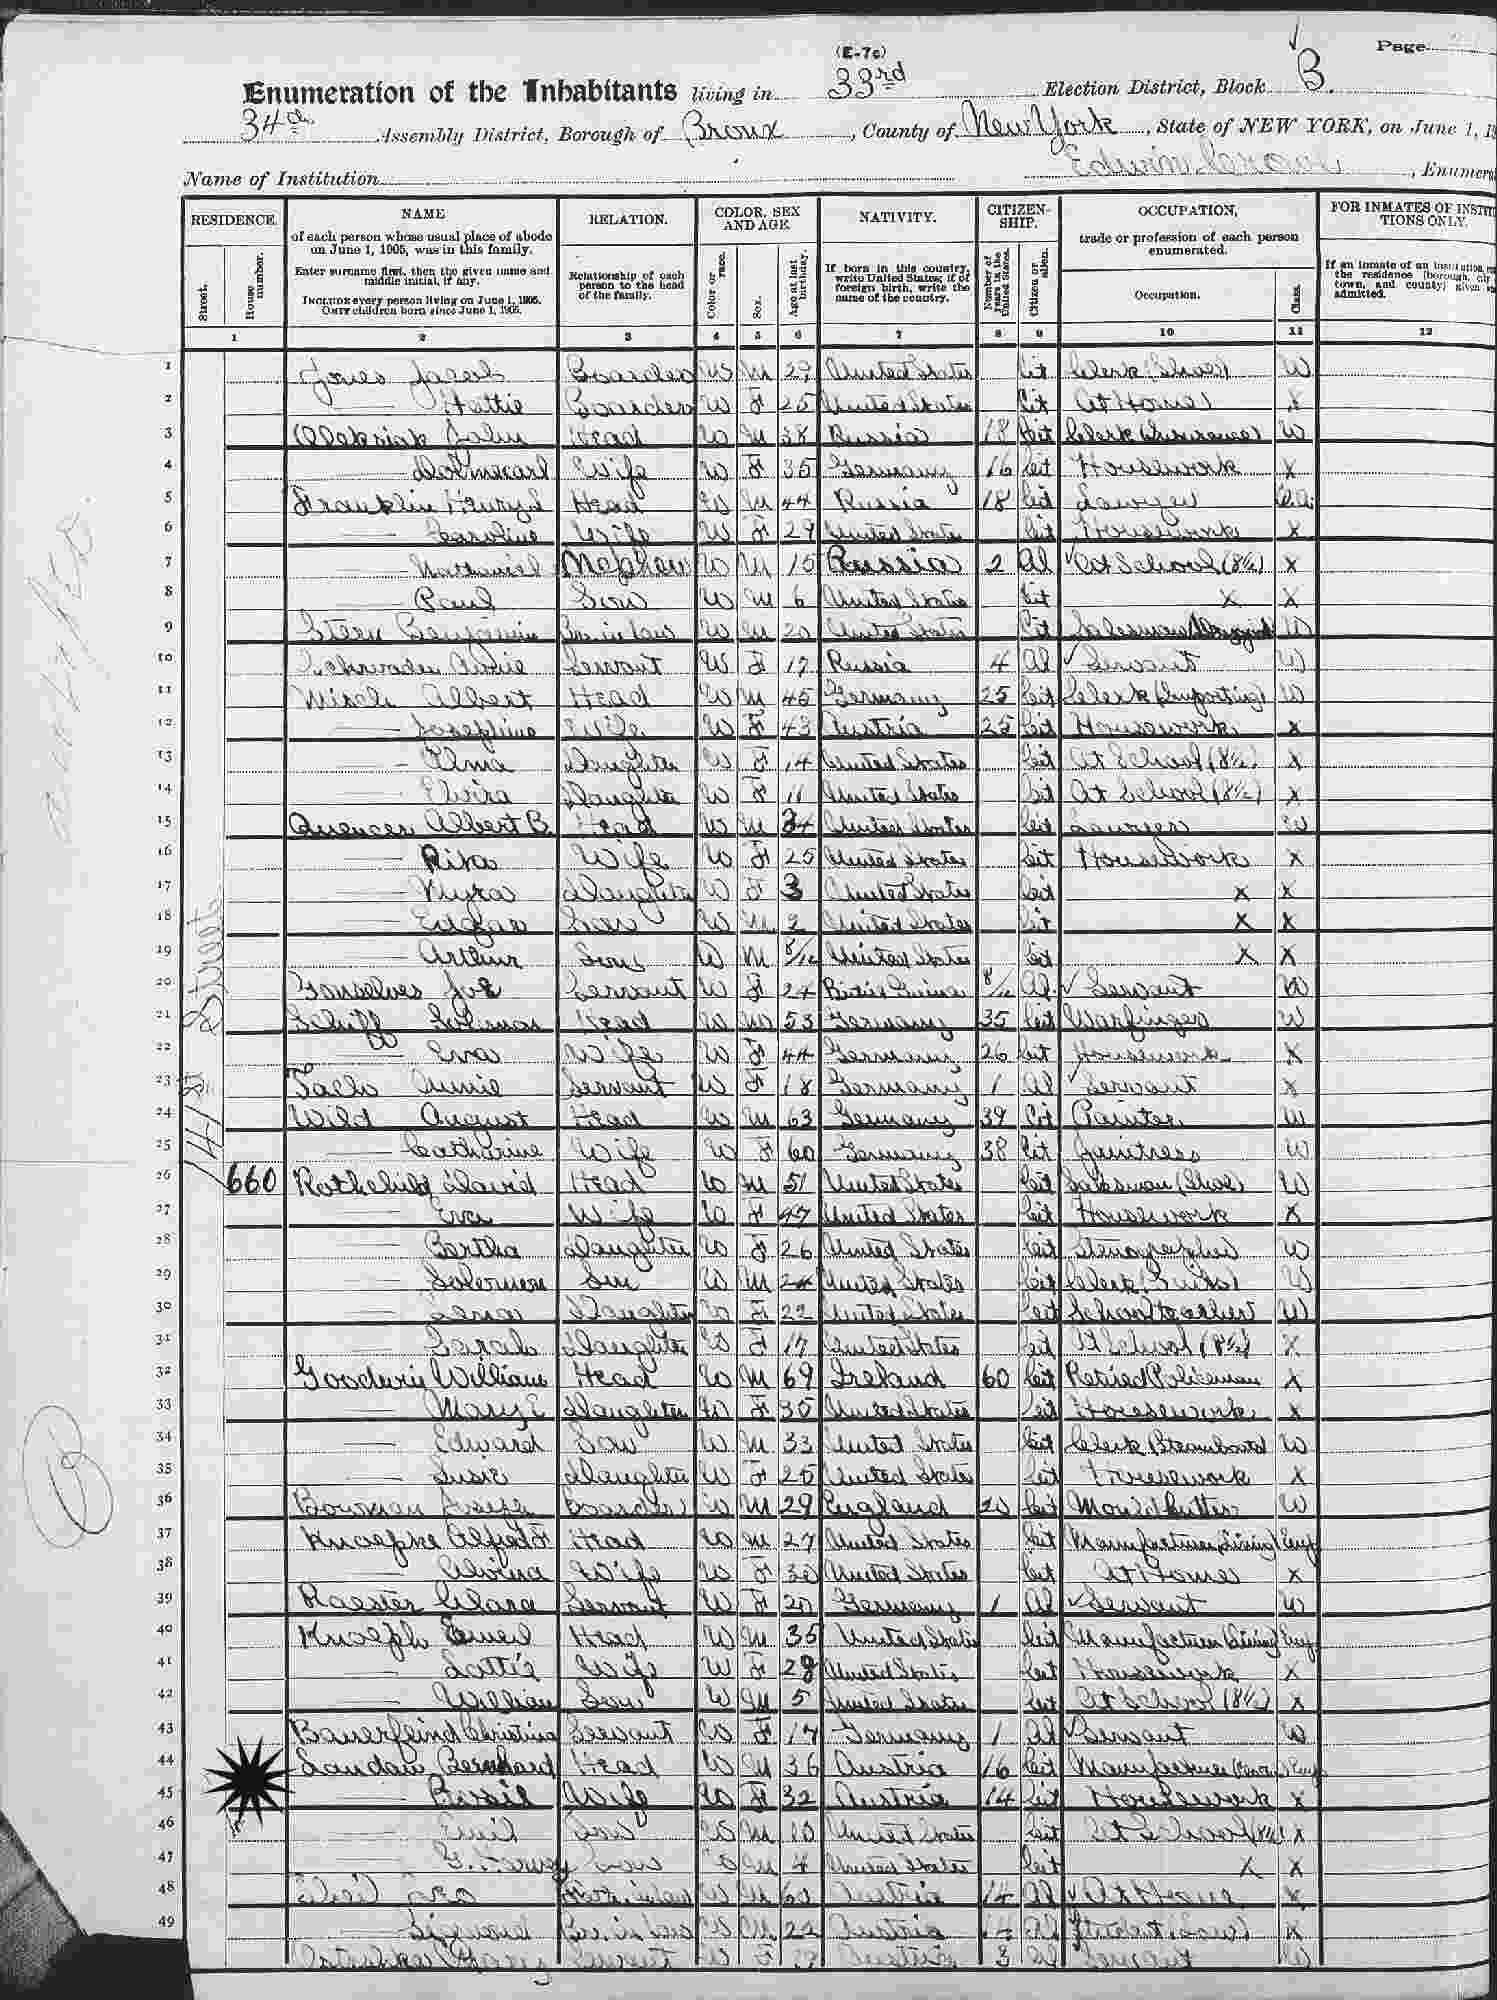 (E-7c)
Page
Enumeration of the Inhabitants living in 33rd Election District, Block B.
34th Assembly District, Borough of Bronx, County of New York, State of NEW YORK, on June 1, 19
Name of Institution Edwin , Enumera
RESIDENCE. NAME RELATION. COLOR, SEX AND AGE. NATIVITY. CITIZEN-SHIP. OCCUPATION, FOR INMATES OF INSTITUTIONS ONLY.
of each person whose usual place of abode on June 1, 1905, was in this family.
Enter surname first, then the given name and middle initial, if any.
INCLUDE every person living on June 1, 1905. OMIT children born since June 1, 1905.
Relationship of each person to the head of the family.
If born in this country, write United States; if of foreign birth, write the name of the country.
trade or profession of each person enumerated.
If an inmate of an institution, the residence (borough, city town, and county) given admitted.
Street. House number. Color or race. Sex. Age at last birthday. Number of years in the United States. Citizen or alien. Occupation. Class.
1 2 3 4 5 6 7 8 9 10 11 12
141 St Street
1 Jacob Boarder W M 29 United States Cit Clerk W
2 — Hattie Boarder W F 25 United States Cit At Home X
3 John Head W M 38 Russia 18 Cit Clerk (Insurance) W
4 — Wife W F 35 Germany 16 Cit Housework X
5 Franklin Henry Head W M 44 Russia 18 Cit Lawyer O.A.
6 — Caroline Wife W F 29 United States Cit Housework X
7 — Nathaniel Nephew W M 15 Russia 2 Al At School (8½) X
8 — Paul Son W M 6 United States Cit X X
9 Benjamin W M 20 United States Cit Salesman W
10 Annie Servant W F 17 Russia 4 Al Servant W
11 Misch Albert Head W M 45 Germany 25 Cit Clerk (Importing) W
12 — Josephine Wife W F 43 Austria 25 Cit Housework X
13 — Daughter W F 14 United States Cit At School (8½) X
14 — Elvira Daughter W F 11 United States Cit At School (8½) X
15 Quencer Albert B. Head W M 34 United States Cit Lawyer W
16 — Rita Wife W F 25 United States Cit Housework X
17 — Myra Daughter W F 3 United States Cit X X
18 — Edgar Son W M 2 United States Cit X X
19 — Arthur Son W M 8/12 United States Cit X X
20 Gonselves Servant W F 24 8/12 Al Servant W
21 Schiff Solomon Head W M 53 Germany 35 Cit W
22 — Eva Wife W F 44 Germany 26 Cit Housework X
23 Annie Servant W F 18 Germany 1 Al Servant X
24 Wild August Head W M 63 Germany 39 Cit Painter W
25 — Catharine Wife W F 60 Germany 38 Cit Janitress W
26 660 Rothchild David Head W M 51 United States Cit Salesman W
27 — Eva Wife W F 47 United States Cit Housework X
28 — Bertha Daughter W F 26 United States Cit Stenographer W
29 — Solomon Son W M 24 United States Cit Clerk W
30 — Daughter W F 22 United States Cit School teacher W
31 — Sarah Daughter W F 17 United States Cit At School (8½) X
32 Goodwin William Head W M 69 Ireland 60 Cit Retired Policeman X
33 — Mary E Daughter W F 35 United States Cit Housework X
34 — Edward Son W M 33 United States Cit Clerk Steamboats W
35 — Susie Daughter W F 25 United States Cit Housework X
36 Bowman Boarder W M 29 England 20 Cit W
37 Knoepke Alfred Head W M 27 United States Cit Manufacturer Emp
38 — Alvina Wife W F 30 United States Cit At Home X
39 Raester Clara Servant W F 20 Germany 1 Al Servant W
40 Knoeph Emil Head W M 35 United States Cit Manufacturer Emp
41 — Lottie Wife W F 28 United States Cit Housework X
42 — William Son W M 5 United States Cit At School (8½) X
43 Bauerfeind Christina Servant W F 17 Germany 1 Al Servant W
44 Landau Bernhard Head W M 36 Austria 16 Cit Manufacturer Emp
45 — Rosie Wife W F 32 Austria 14 Cit Housework X
46 — Emil Son W M 10 United States Cit At School (8½) X
47 — Son W M 4 United States Cit X X
48 W M 60 Austria 14 Al At Home X
49 — Sigmund W M 22 Austria 14 Al Student X
Servant W F Austria 3 Al Servant W
B